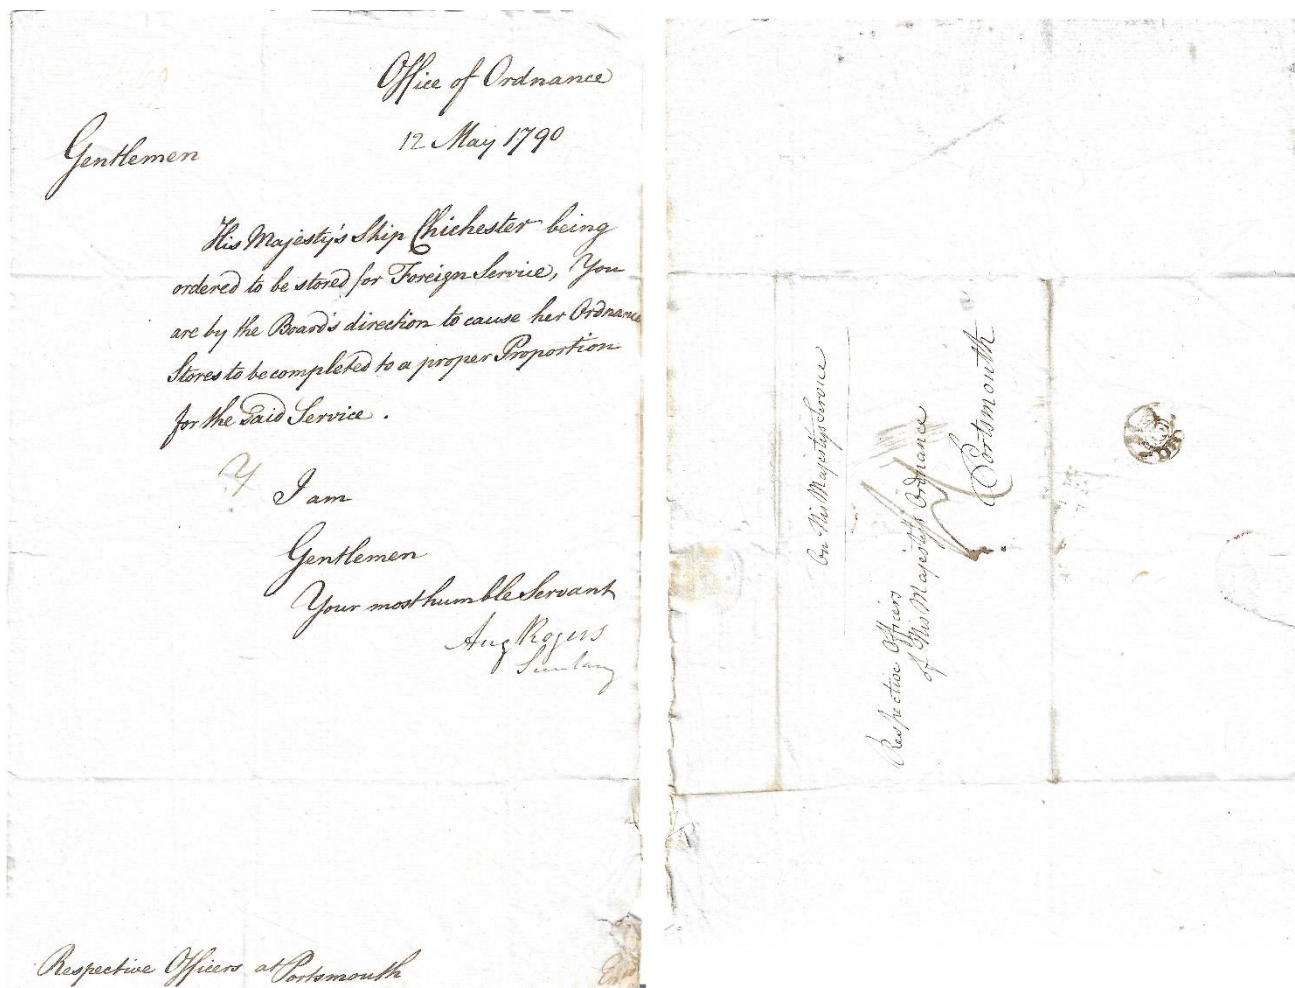 Office of Ordnance
12 May 1790
Gentlemen
His Majesty's Ship Chichester being
ordered to be stored for Foreign Service, You
are by the Board's direction to cause her Ordnance
Stores to be completed to a proper Proportion
for the Said Service.
I am
Gentlemen
Your most humble Servant
Aug Rogers
Secretary
Respective Officers at Portsmouth
On His Majesty's Service
Respective Officers
of His Majesty's Ordnance
Portsmouth